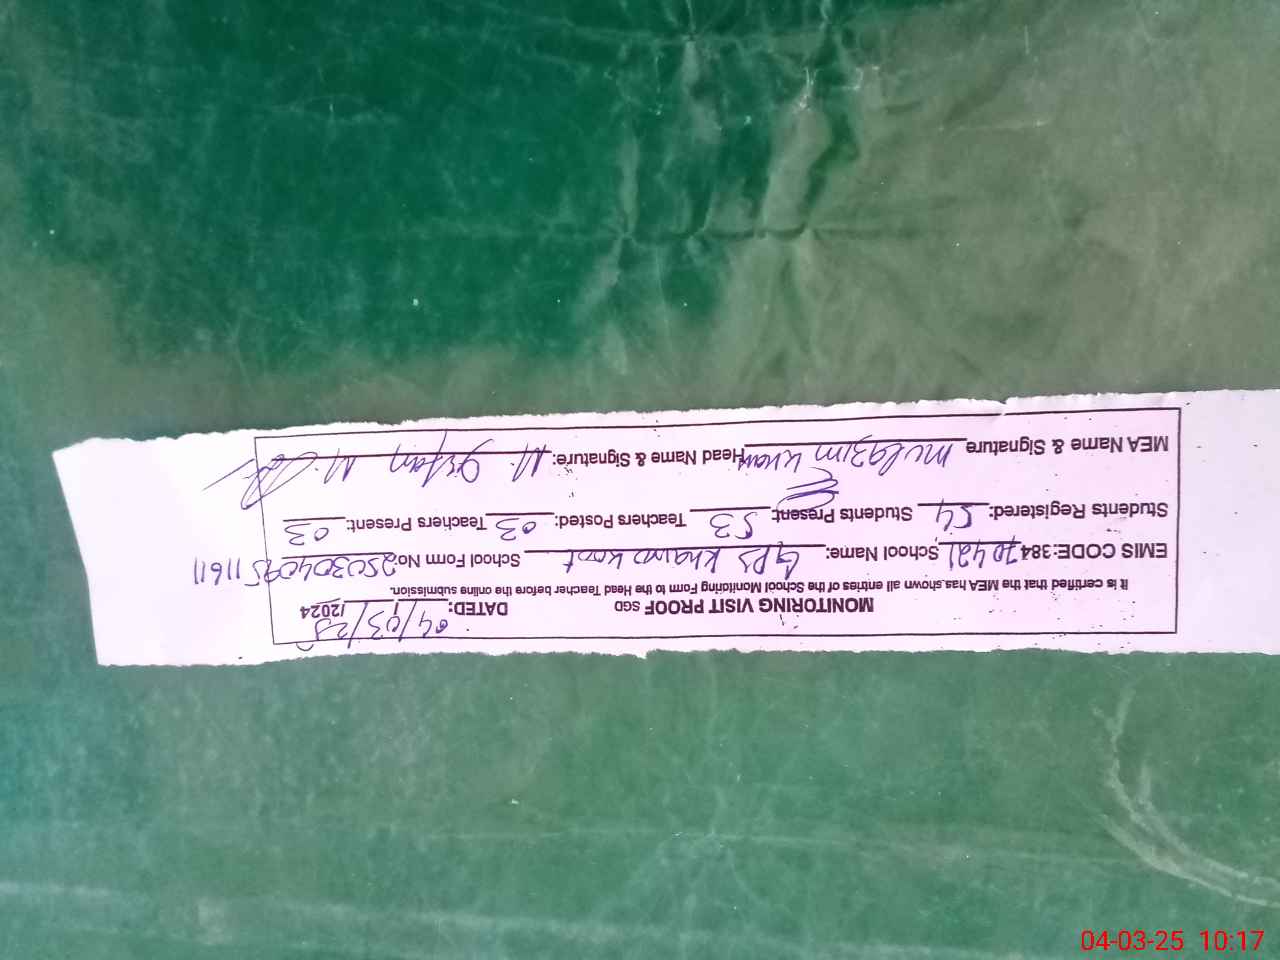 MONITORING VISIT PROOF SGD DATED: 04/03/25 /2024
It is certified that the MEA has shown all entries of the School Monitoring Form to the Head Teacher before the online submission.
EMIS CODE:384 70421 School Name: GPS Khanu Koot School Form No. 250304095 11611
Students Registered: 54 Students Present: 53 Teachers Posted: 03 Teachers Present: 03
MEA Name & Signature mulazim khan Head Name & Signature: M. Irfan
04-03-25 10:17